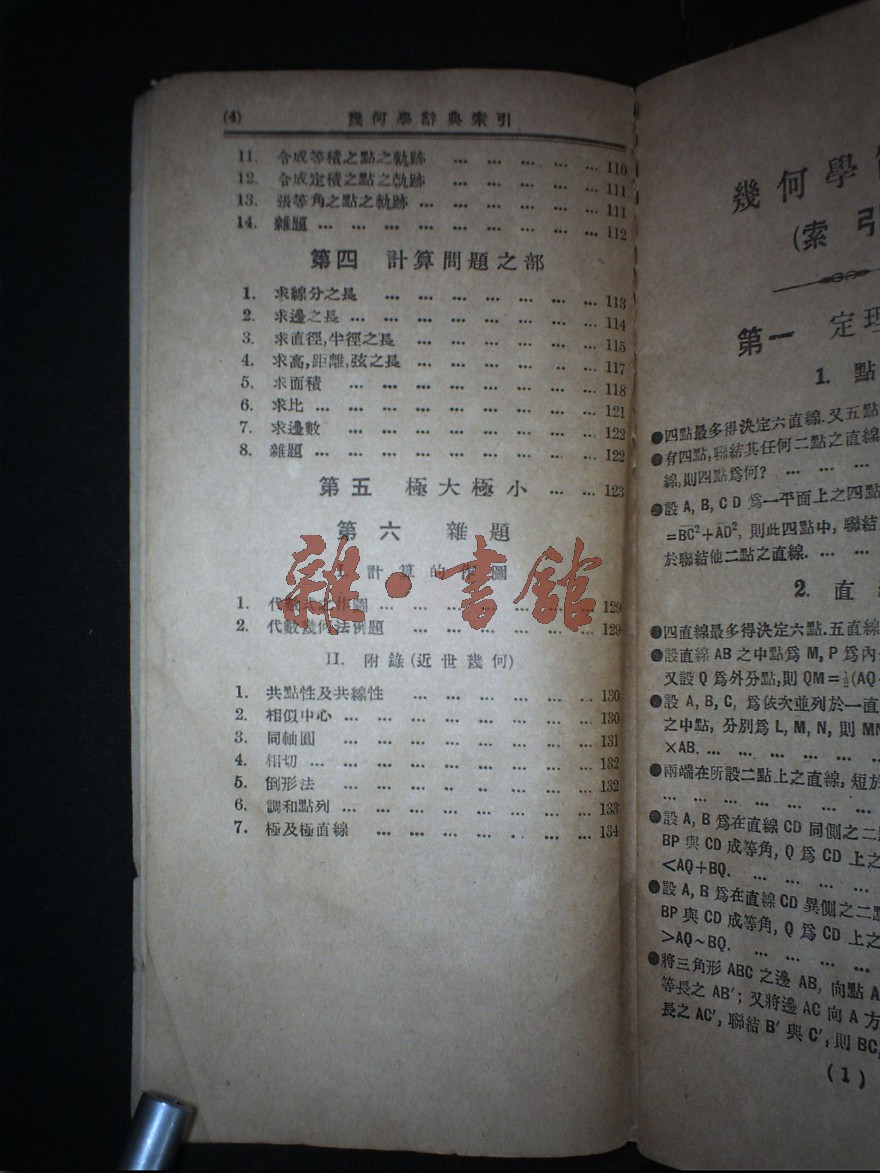 (4) 幾何學辭典索引
11. 令成等積之點之軌跡 … … … … … 110
12. 令成定積之點之軌跡 … … … … … 111
13. 張等角之點之軌跡 … … … … … … 111
14. 雜題 … … … … … … … … … 112
第四 計算問題之部
1. 求線分之長 … … … … … … … 113
2. 求邊之長 … … … … … … … … 114
3. 求直徑,半徑之長 … … … … … … 115
4. 求高,距離,弦之長 … … … … … … 117
5. 求面積 … … … … … … … … 118
6. 求比 … … … … … … … … … 121
7. 求邊數 … … … … … … … … 122
8. 雜題 … … … … … … … … … 122
第五 極大極小 … … 123
第六 雜題
I. 計算的作圖
1. 代數式之作圖 … … … … … … … 129
2. 代數幾何法例題 … … … … … … 129
II. 附錄(近世幾何)
1. 共點性及共線性 … … … … … … 130
2. 相似中心 … … … … … … … … 130
3. 同軸圓 … … … … … … … … 131
4. 相切 … … … … … … … … … 132
5. 倒形法 … … … … … … … … 132
6. 調和點列 … … … … … … … … 133
7. 極及極直線 … … … … … … … 134
雜·書館
幾何學
(索引
第一 定理
1. 點
●四點最多得決定六直線.又五點
●有四點,聯結其任何二點之直線
線,則四點爲何? … … …
●設 A, B, C D 爲一平面上之四點
=BC²+AD², 則此四點中, 聯結
於聯結他二點之直線. … …
2. 直
●四直線最多得決定六點.五直線
●設直線 AB 之中點爲 M, P 爲內
又設 Q 爲外分點,則 QM=½(AQ
●設 A, B, C, 爲依次並列於一直
之中點, 分別爲 L, M, N, 則 MN
×AB. … … … … …
●兩端在所設二點上之直線, 短於
… … … … … … …
●設 A, B 爲在直線 CD 同側之二
BP 與 CD 成等角, Q 爲 CD 上之
<AQ+BQ. … … … …
●設 A, B 爲在直線 CD 異側之二點
BP 與 CD 成等角, Q 爲 CD 上之
>AQ~BQ. … … … …
●將三角形 ABC 之邊 AB, 向點 A
等長之 AB′; 又將邊 AC 向 A 方
長之 AC′, 聯結 B′ 與 C′, 則 BC,
(1)